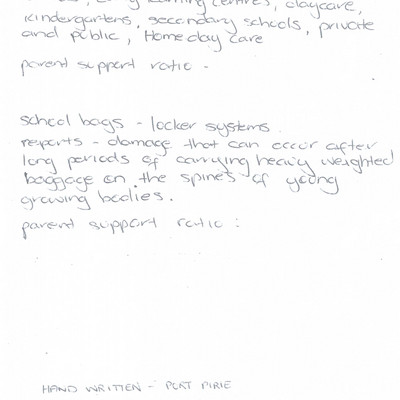 learning centres, daycare,
kindergartens, secondary schools, private
and public, Home day care
parent support ratio -
school bags - locker systems.
reports - damage that can occur after
long periods of carrying heavy weighted
baggage on the spines of young
growing bodies.
parent support ratio :
HAND WRITTEN - PORT PIRIE